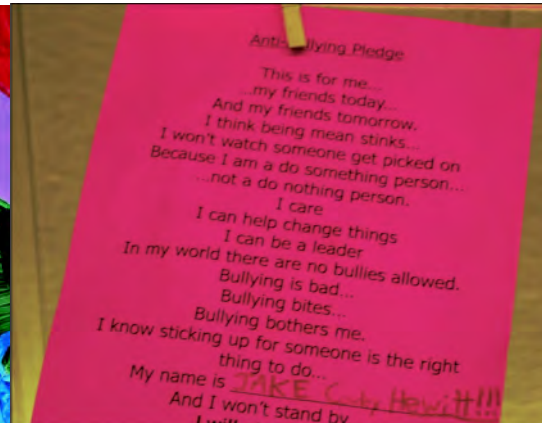 Anti- llying Pledge
This is for me...
...my friends today...
And my friends tomorrow.
I think being mean stinks...
I won't watch someone get picked on
Because I am a do something person...
...not a do nothing person.
I care
I can help change things
I can be a leader
In my world there are no bullies allowed.
Bullying is bad...
Bullying bites...
Bullying bothers me.
I know sticking up for someone is the right
thing to do...
My name is JAKE Hewitt!!!
And I won't stand by
I will